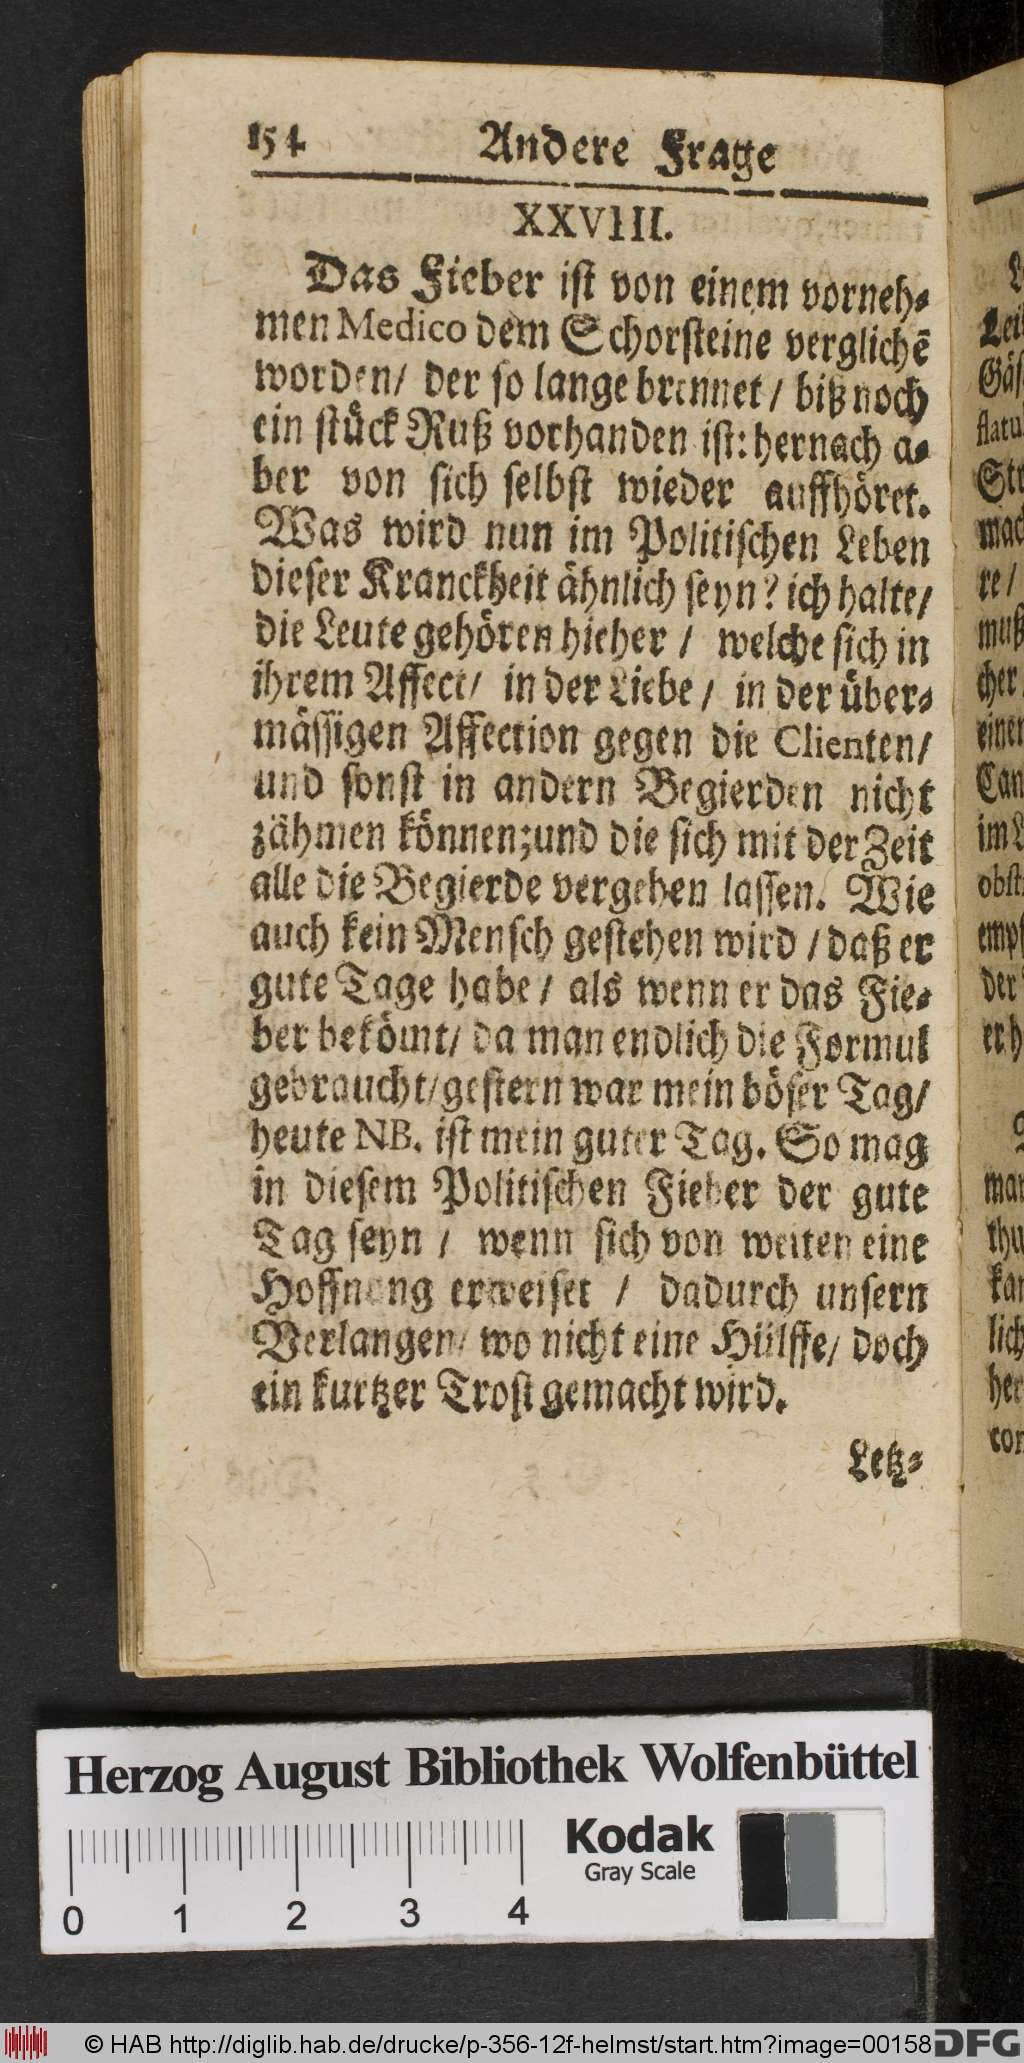 154 Andere Frage
XXVIII.
Das Fieber ist von einem vorneh-
men Medico dem Schorsteine verglichē
worden/ der so lange brennet/ biß noch
ein stück Ruß vorhanden ist: hernach a-
ber von sich selbst wieder auffhöret.
Was wird nun im Politischen Leben
dieser Kranckheit ähnlich seyn? ich halte/
die Leute gehören hieher / welche sich in
ihrem Affect/ in der Liebe/ in der über-
mässigen Affection gegen die Clienten/
und sonst in andern Begierden nicht
zähmen können; und die sich mit der Zeit
alle die Begierde vergehen lassen. Wie
auch kein Mensch gestehen wird / daß er
gute Tage habe/ als wenn er das Fie-
ber bekömt/ da man endlich die Formul
gebraucht/ gestern war mein böser Tag/
heute NB. ist mein guter Tag. So mag
in diesem Politischen Fieber der gute
Tag seyn / wenn sich von weiten eine
Hoffnung erweiset / dadurch unsern
Verlangen/ wo nicht eine Hülffe/ doch
ein kurtzer Trost gemacht wird.
Letz-
Lei
Gäs
flatu
Str
mac
re /
muß
cher
einen
Can
im L
obst
emp
der
er h
man
thu
kan
lich
her
con
Herzog August Bibliothek Wolfenbüttel
Kodak
Gray Scale
0 1 2 3 4
© HAB http://diglib.hab.de/drucke/p-356-12f-helmst/start.htm?image=00158 DFG